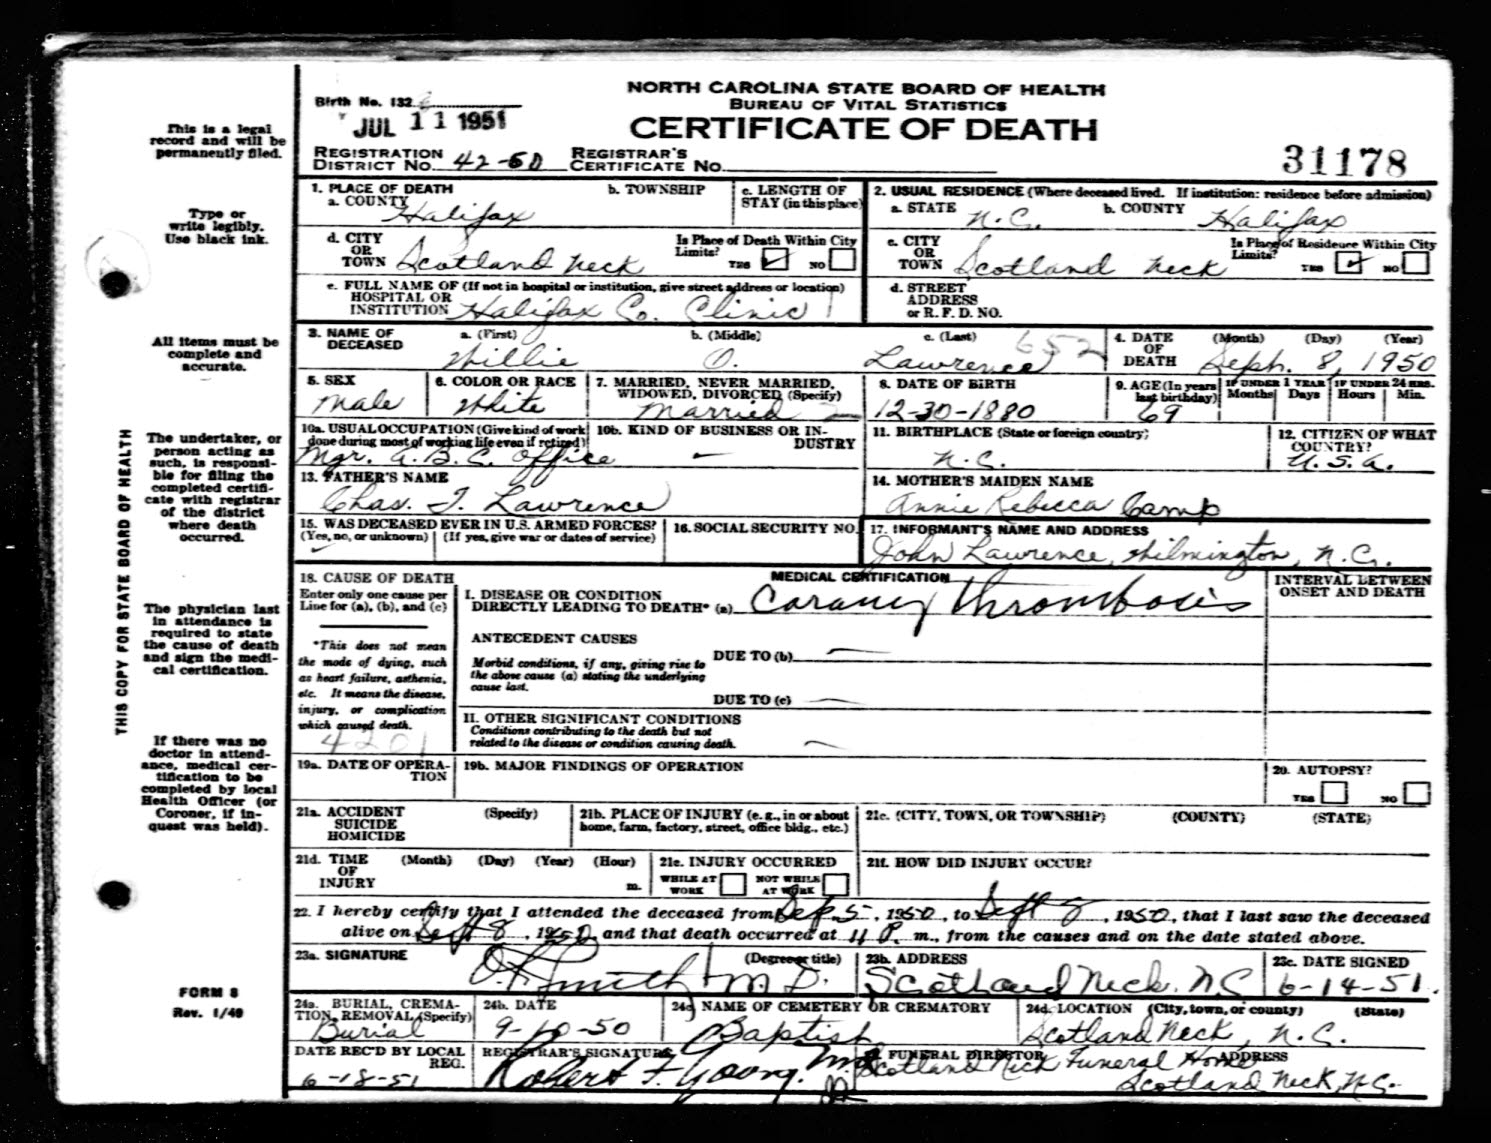 NORTH CAROLINA STATE BOARD OF HEALTH
BUREAU OF VITAL STATISTICS
CERTIFICATE OF DEATH
Birth No. 132
JUL 11 1951
REGISTRATION DISTRICT NO. 42-50 REGISTRAR'S CERTIFICATE NO.
31178
This is a legal record and will be permanently filed.
Type or write legibly. Use black ink.
All items must be complete and accurate.
The undertaker, or person acting as such, is responsible for filing the completed certificate with registrar of the district where death occurred.
The physician last in attendance is required to state the cause of death and sign the medical certification.
If there was no doctor in attendance, medical certification to be completed by local Health Officer (or Coroner, if inquest was held).
FORM 8
Rev. 1/49
THIS COPY FOR STATE BOARD OF HEALTH
1. PLACE OF DEATH
a. COUNTY Halifax
b. TOWNSHIP
c. LENGTH OF STAY (in this place)
2. USUAL RESIDENCE (Where deceased lived. If institution: residence before admission)
a. STATE N.C.
b. COUNTY Halifax
d. CITY OR TOWN Scotland Neck
Is Place of Death Within City Limits? YES ✓ NO
c. CITY OR TOWN Scotland Neck
Is Place of Residence Within City Limits? YES ✓ NO
e. FULL NAME OF (If not in hospital or institution, give street address or location) HOSPITAL OR INSTITUTION Halifax Co. Clinic
d. STREET ADDRESS or R. F. D. NO.
3. NAME OF DECEASED
a. (First) Willie
b. (Middle) O.
c. (Last) Lawrence
652
4. DATE OF DEATH (Month) (Day) (Year) Seph. 8, 1950
5. SEX Male
6. COLOR OR RACE White
7. MARRIED, NEVER MARRIED, WIDOWED, DIVORCED (Specify) Married 2
8. DATE OF BIRTH 12-30-1880
9. AGE (In years last birthday) 69
IF UNDER 1 YEAR Months Days
IF UNDER 24 HRS. Hours Min.
10a. USUAL OCCUPATION (Give kind of work done during most of working life even if retired) Mgr. A.B.C. Office
10b. KIND OF BUSINESS OR INDUSTRY —
11. BIRTHPLACE (State or foreign country) N.C.
12. CITIZEN OF WHAT COUNTRY? U.S.A.
13. FATHER'S NAME Chas. T. Lawrence
14. MOTHER'S MAIDEN NAME Annie Rebecca Camp
15. WAS DECEASED EVER IN U.S. ARMED FORCES?
(Yes, no, or unknown) (If yes, give war or dates of service)
16. SOCIAL SECURITY NO.
17. INFORMANT'S NAME AND ADDRESS John Lawrence, Wilmington, N.C.
18. CAUSE OF DEATH
Enter only one cause per Line for (a), (b), and (c)
*This does not mean the mode of dying, such as heart failure, asthenia, etc. It means the disease, injury, or complication which caused death.
4201
MEDICAL CERTIFICATION
INTERVAL BETWEEN ONSET AND DEATH
I. DISEASE OR CONDITION DIRECTLY LEADING TO DEATH* (a) Coronary Thrombosis
ANTECEDENT CAUSES
Morbid conditions, if any, giving rise to the above cause (a) stating the underlying cause last.
DUE TO (b) —
DUE TO (c) —
II. OTHER SIGNIFICANT CONDITIONS
Conditions contributing to the death but not related to the disease or condition causing death. —
19a. DATE OF OPERATION
19b. MAJOR FINDINGS OF OPERATION
20. AUTOPSY? YES NO
21a. ACCIDENT SUICIDE HOMICIDE (Specify)
21b. PLACE OF INJURY (e. g., in or about home, farm, factory, street, office bldg., etc.)
21c. (CITY, TOWN, OR TOWNSHIP) (COUNTY) (STATE)
21d. TIME OF INJURY (Month) (Day) (Year) (Hour) m.
21e. INJURY OCCURRED WHILE AT WORK NOT WHILE AT WORK
21f. HOW DID INJURY OCCUR?
22. I hereby certify that I attended the deceased from Sep 5, 1950, to Sept 8, 1950, that I last saw the deceased
alive on Sept 8, 1950, and that death occurred at 11 P. m., from the causes and on the date stated above.
23a. SIGNATURE (Degree or title) O.F. Smith M.D.
23b. ADDRESS Scotland Neck, N.C.
23c. DATE SIGNED 6-14-51.
24a. BURIAL, CREMATION, REMOVAL (Specify) Burial
24b. DATE 9-10-50
24c. NAME OF CEMETERY OR CREMATORY Baptist
24d. LOCATION (City, town, or county) (State) Scotland Neck, N.C.
DATE REC'D BY LOCAL REG. 6-18-51
REGISTRAR'S SIGNATURE Robert F. Young. M.D.
25. FUNERAL DIRECTOR ADDRESS
Scotland Neck Funeral Home
Scotland Neck, N.C.